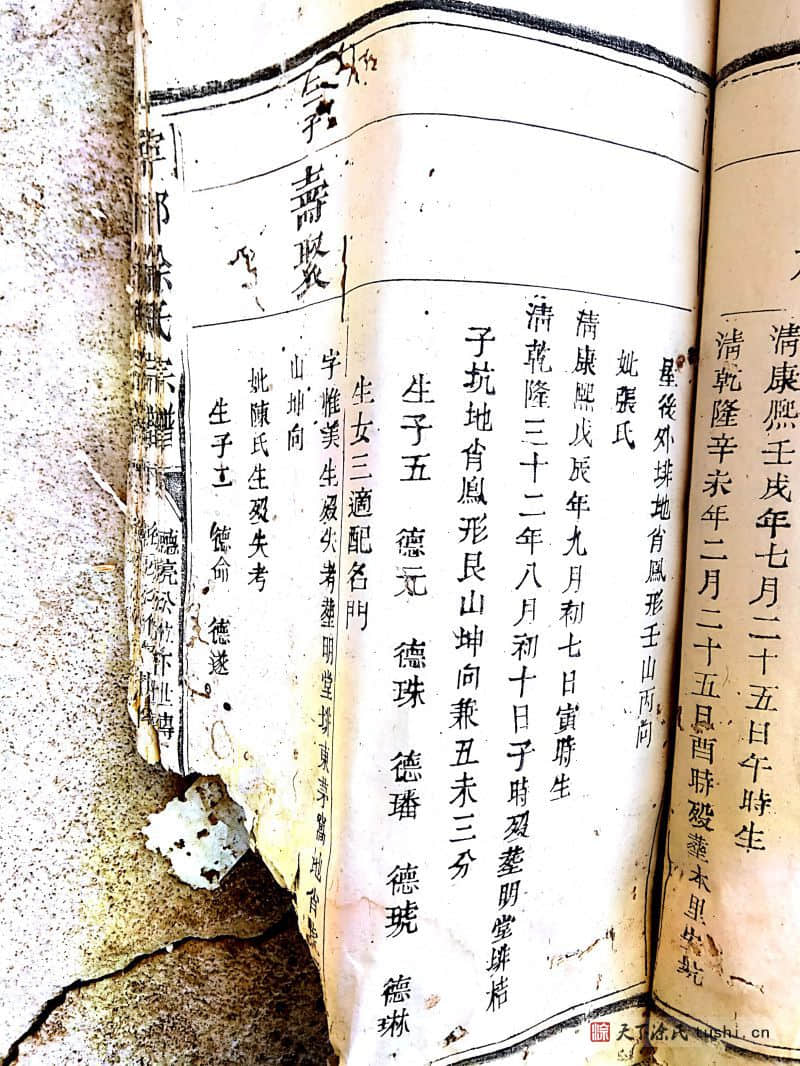 清康熙壬戌年七月二十五日午時生
清乾隆辛未年二月二十五日酉時殁葬本里坑
屋後外排地肖鳳形壬山丙向
妣張氏
清康熙戊辰年九月初七日寅時生
清乾隆三十二年八月初十日子時殁葬明堂排桔
子坑地肖鳳形艮山坤向兼丑未三分
生子五 德元 德珠 德璠 德琥 德琳
生女三適配名門
子 壽聚
字惟美生殁失考葬明堂排東茅窩地肖
山坤向
妣陳氏生殁失考
生子二 德命 德遂
寧都涂氏宗譜
天下涂氏 tushi.cn